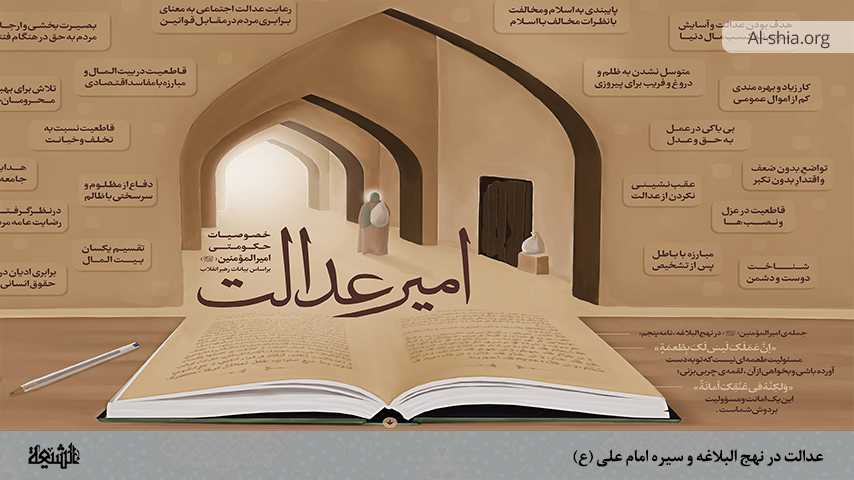 Al-shia.org
هدف بودن عدالت و آسایش
مال دنیا
پایبندی به اسلام و مخالفت
با نظرات مخالف با اسلام
رعایت عدالت اجتماعی به معنای
برابری مردم در مقابل قوانین
بصیرت بخشی و ارجا
مردم به حق در هنگام فتنه
کار زیاد و بهره مندی
کم از اموال عمومی
متوسل نشدن به ظلم و
دروغ و فریب برای پیروزی
قاطعیت در بیت المال و
مبارزه با مفاسد اقتصادی
تلاش برای بهبو
محرومان
بی باکی در عمل
به حق و عدل
قاطعیت نسبت به
تخلف و خیانت
تواضع بدون ضعف
و اقتدار بدون تکبر
عقب نشینی
نکردن از عدالت
دفاع از مظلوم و
سرسختی با ظالم
هدایت
جامعه
قاطعیت در عزل
و نصب ها
در نظر گرفتن
رضایت عامه مردم
مبارزه با باطل
پس از تشخیص
تقسیم یکسان
بیت المال
شناخت
دوست و دشمن
برابری ادیان در
حقوق انسانی
خصوصیات
حکومتی
امیرالمؤمنین
براساس بیانات رهبر انقلاب
امیر عدالت
جمله‌ی امیرالمؤمنین در نهج البلاغه، نامه پنجم:
«اِنَّ عَمَلَکَ لَیسَ لَکَ بِطُعمَةٍ»
مسئولیت طعمه ای نیست که تو به دست
آورده باشی و بخواهی از آن، لقمه ی چربی بزنی؛
«وَلکِنَّهُ فی عُنُقِکَ اَمانَةٌ»
این یک امانت و مسؤولیت
بر دوش شماست.
عدالت در نهج البلاغه و سیره امام علی (ع)
الشیعة